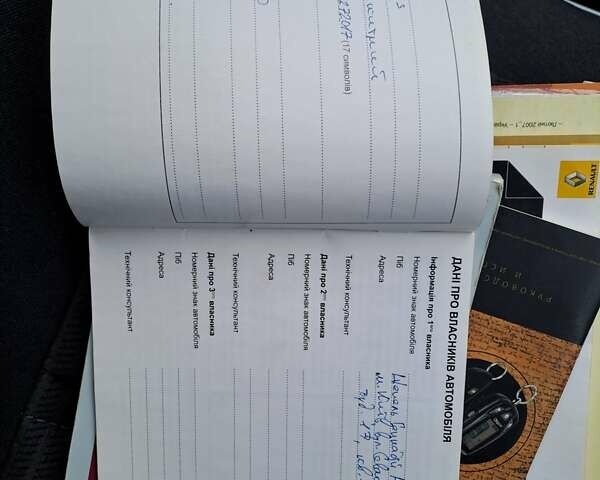 з
272017 (17 символів)
ДАНІ ПРО ВЛАСНИКІВ АВТОМОБІЛЯ
Інформація про 1ого власника
Номерний знак автомобіля
ПІБ
Адреса
Технічний консультант
Дані про 2ого власника
Номерний знак автомобіля
ПІБ
Адреса
Технічний консультант
Дані про 3ого власника
Номерний знак автомобіля
ПІБ
Адреса
Технічний консультант
м. Київ, вул.
буд 17, кв.
– Лютий 2007_1 – Укра
RENAULT
РУКОВОДС
И ИС